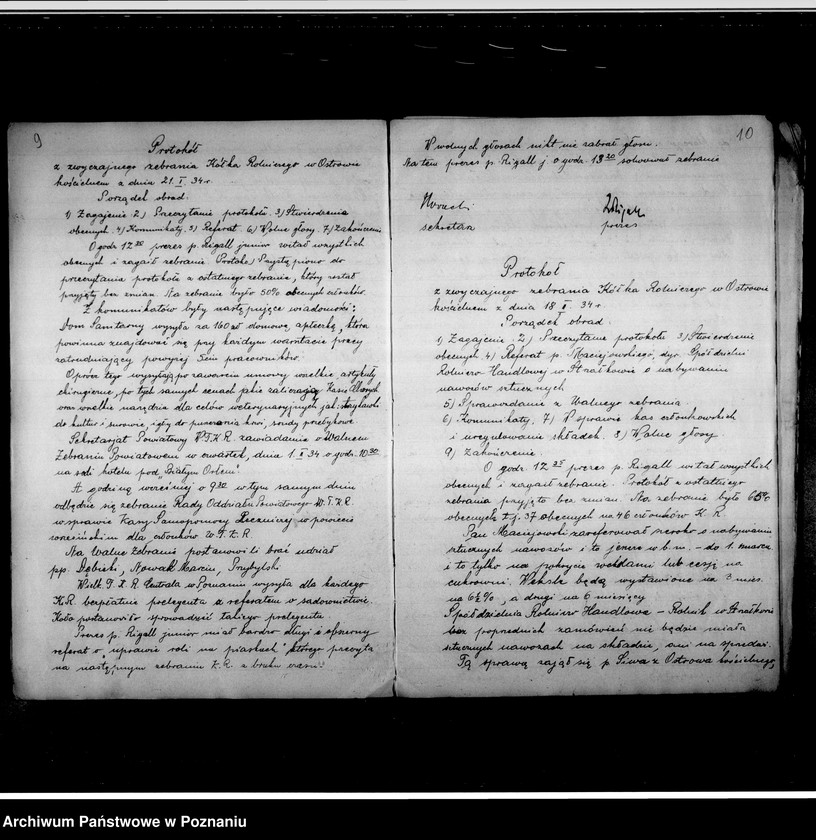 9
Protokół
z zwyczajnego zebrania Kółka Rolniczego w Ostrowie
kościelnem z dnia 21. I. 34 r.
Porządek obrad:
1) Zagajenie 2) Przeczytanie protokołu. 3) Stwierdzenie
obecnych. 4) Komunikaty. 5) Referat. 6) Wolne głosy. 7) Zakończenie
O godz. 12 30 prezes p. Rigall junior witał wszystkich
obecnych i zagaił zebranie. przystąpiono do
przeczytania protokołu z ostatniego zebrania, który został
przyjęty bez zmian. Na zebranie było 50% obecnych członków.
Z komunikatów były następujące wiadomości:
Dom Sanitarny wysyła za 160 zł domową apteczkę, która
powinna znajdować się przy każdym warsztacie pracy
zatrudniający powyżej 5ciu pracowników.
Oprócz tego wysyłają po zawarciu umowy wszelkie artykuły
chirurgiczne, po tych samych cenach jakie Kasie Chorych
oraz wszelkie narzędzia dla celów weterynaryjnych jak: strzykawki
do kultur i surowic, igły do puszczania krwi, sondy przełykowe
Sekretarjat Powiatowy W.T.K.R. zawiadamia o Walnem
Zebraniu Powiatowem w czwartek, dnia 1. II 34 o godz. 10 30
na sali hotelu pod "Białym Orłem".
A godzinę wcześniej o 9 30 w tym samym dniu
odbędzie się zebranie Rady Oddziału Powiatowego W.T.K.R.
w sprawie Kasy Samopomocy Leczniczej w powiecie
wrzesińskim dla członków W.T.K.R
Na Walne Zebranie postanowili brać udział
pp. Dębicki, Nowak Marcin, Przybylski
Wielk. T. K. R. Centrala w Poznaniu wysyła dla każdego
K.R. bezpłatnie prelegenta z referatem w sadownictwie.
Koło postanowiło sprowadzić takiego prelegenta.
Prezes p. Rigall junior miał bardzo długi i obszerny
referat o "uprawie roli na piaskach" którego
na następnym zebraniu K.R. z braku czasu.
10
W wolnych głosach nikt nie zabrał głosu.
Na tem prezes p. Rigall j. o godz. 13 30 solwował zebranie
sekretarz prezes
Protokół
z zwyczajnego zebrania Kółka Rolniczego w Ostrowie
kościelnem z dnia 18 II. 34 r.
Porządek obrad:
1) Zagajenie 2) Przeczytanie protokołu 3) Stwierdzenie
obecnych 4) Referat p. Maciejowskiego, dyr. Spółdzielni
Rolniczo Handlowej w Strzałkowie o nabywaniu
nawozów sztucznych
5) Sprawozdanie z Walnego zebrania.
6) Komunikaty. 7) W sprawie kas członkowskich
i uregulowanie składek. 8) Wolne głosy
9) Zakończenie.
O godz. 12 25 prezes p. Rigall witał wszystkich
obecnych i zagaił zebranie. Protokół z ostatniego
zebrania przyjęto bez zmian. Na zebranie było 65%
obecnych, t. j. 37 obecnych na 46 członków K. R
Pan Maciejowski zareferował szeroko o nabywaniu
sztucznych nawozów i to jeszcze w b.m. - do 1. marca
i to tylko na pokrycie wekslami lub cesją na
cukrowni. Weksle będą wystawione na 3 mies.
na 6½%, a drugi na 6 miesięcy
Spółdzielnia Rolniczo Handlowa - Rolnik w Strzałkowie
bez poprzednich zamówień nie będzie miała
sztucznych nawozach na składzie, ani na sprzedaż.
Tą sprawą zajął się p. Siwa z Ostrowa kościelnego,
Archiwum Państwowe w Poznaniu